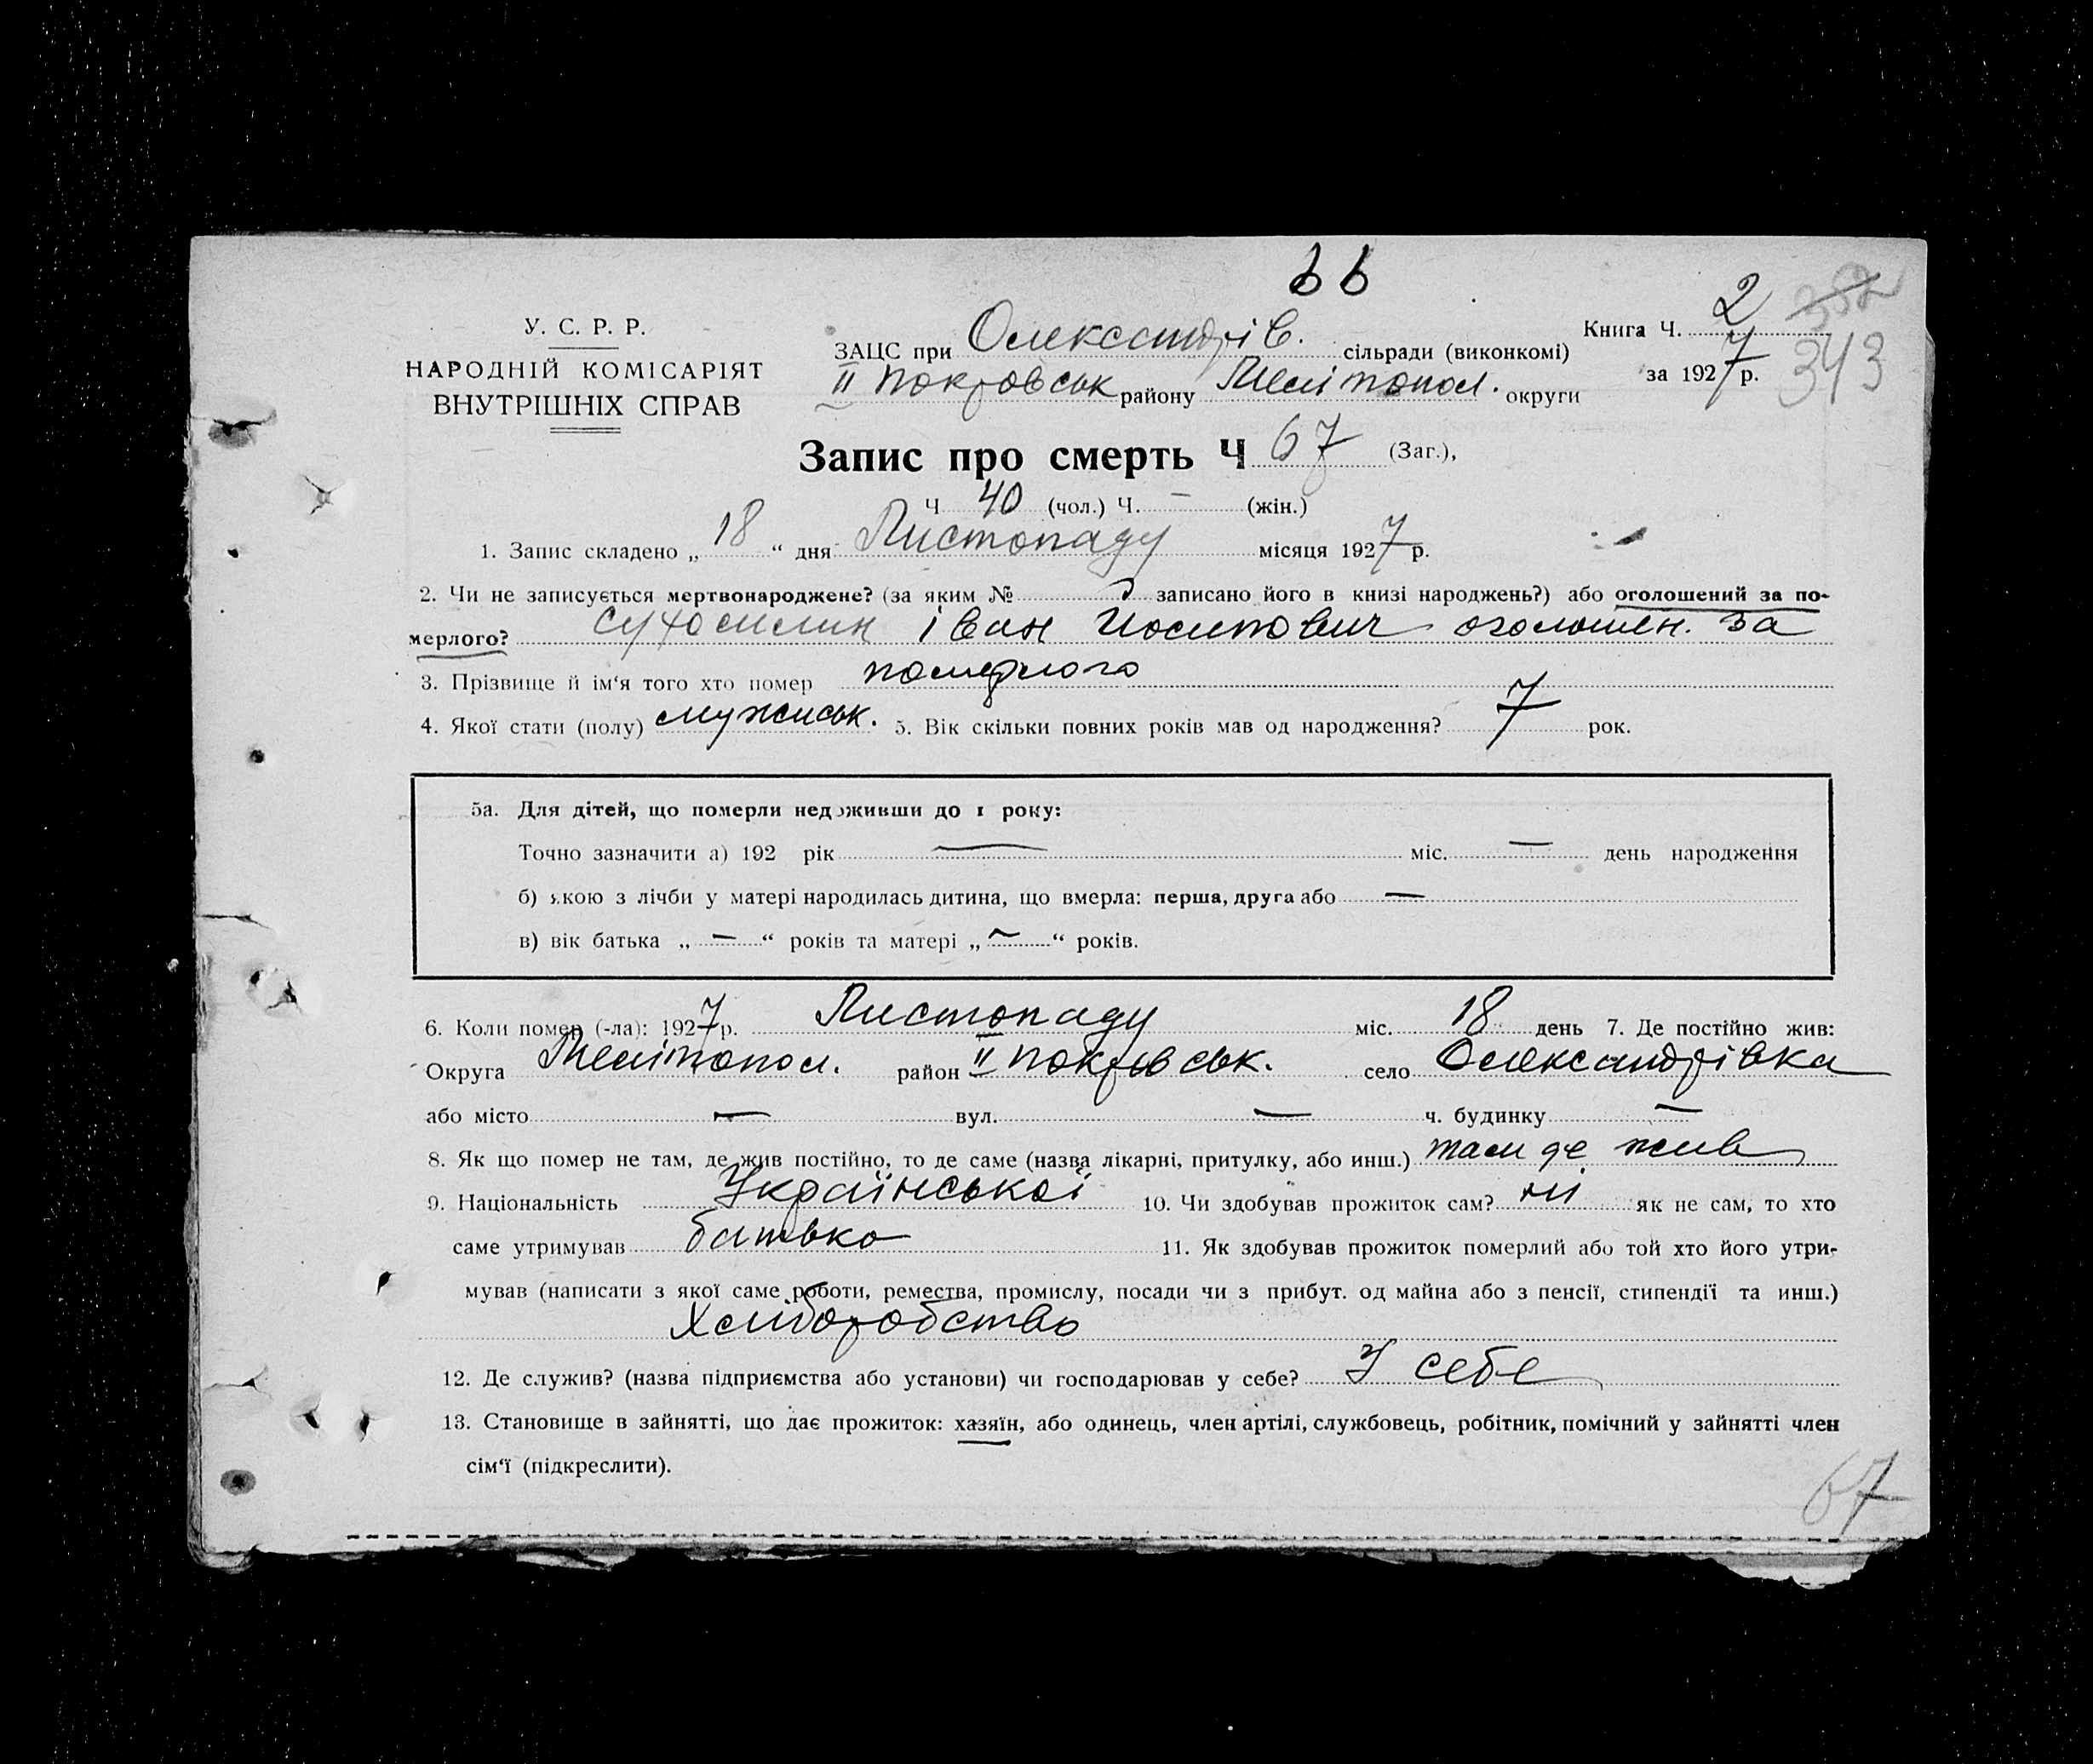 66
У. С. Р. Р.
НАРОДНІЙ КОМІСАРІЯТ
ВНУТРІШНІХ СПРАВ
ЗАЦС при Олександрів. сільради (виконкомі)
II Покровськ району Мелітопол. округи
Книга Ч. 2
за 1927 р.
382
343
Запис про смерть Ч 67 (Заг.),
Ч 40 (чол.) Ч. — (жін.)
1. Запис складено „ 18 “ дня Листопаду місяця 1927 р.
2. Чи не записується мертвонароджене? (за яким № записано його в книзі народжень?) або оголошений за по-
мерлого? Сухосилин Іван Иосипович оголошен. за
3. Прізвище й ім‘я того хто помер померлого
4. Якої стати (полу) мужиськ. 5. Вік скільки повних років мав од народження? 7 рок.
5а. Для дітей, що померли недоживши до 1 року:
Точно зазначити а) 192 рік — міс. — день народження
б) якою з лічби у матері народилась дитина, що вмерла: перша, друга або —
в) вік батька „ — “ років та матері „ — “ років.
6. Коли помер (-ла): 1927 р. Листопаду міс. 18 день 7. Де постійно жив:
Округа Мелітопол. район II Покровськ. село Олександрівка
або місто — вул. — ч. будинку —
8. Як що помер не там, де жив постійно, то де саме (назва лікарні, притулку, або инш.) там де жив
9. Національність Української 10. Чи здобував прожиток сам? ні як не сам, то хто
саме утримував батько 11. Як здобував прожиток померлий або той хто його утри-
мував (написати з якої саме роботи, ремества, промислу, посади чи з прибут. од майна або з пенсії, стипендії та инш.)
Хліборобство
12. Де служив? (назва підприємства або установи) чи господарював у себе? У себе
13. Становище в зайнятті, що дає прожиток: хазяїн, або одинець, член артілі, службовець, робітник, помічний у зайнятті член
сім‘ї (підкреслити).
67